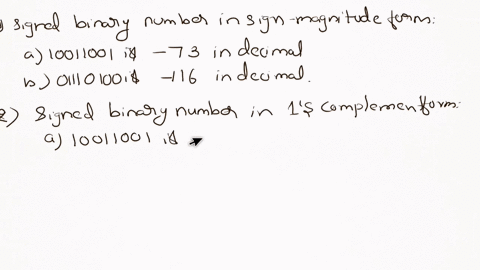 ) signed binary number in sign-magnitude form:
a) 10011001 is -73 in decimal
b) 01110100 is -116 in decimal.
2) Signed binary number in 1's complement form:
a) 10011001 is